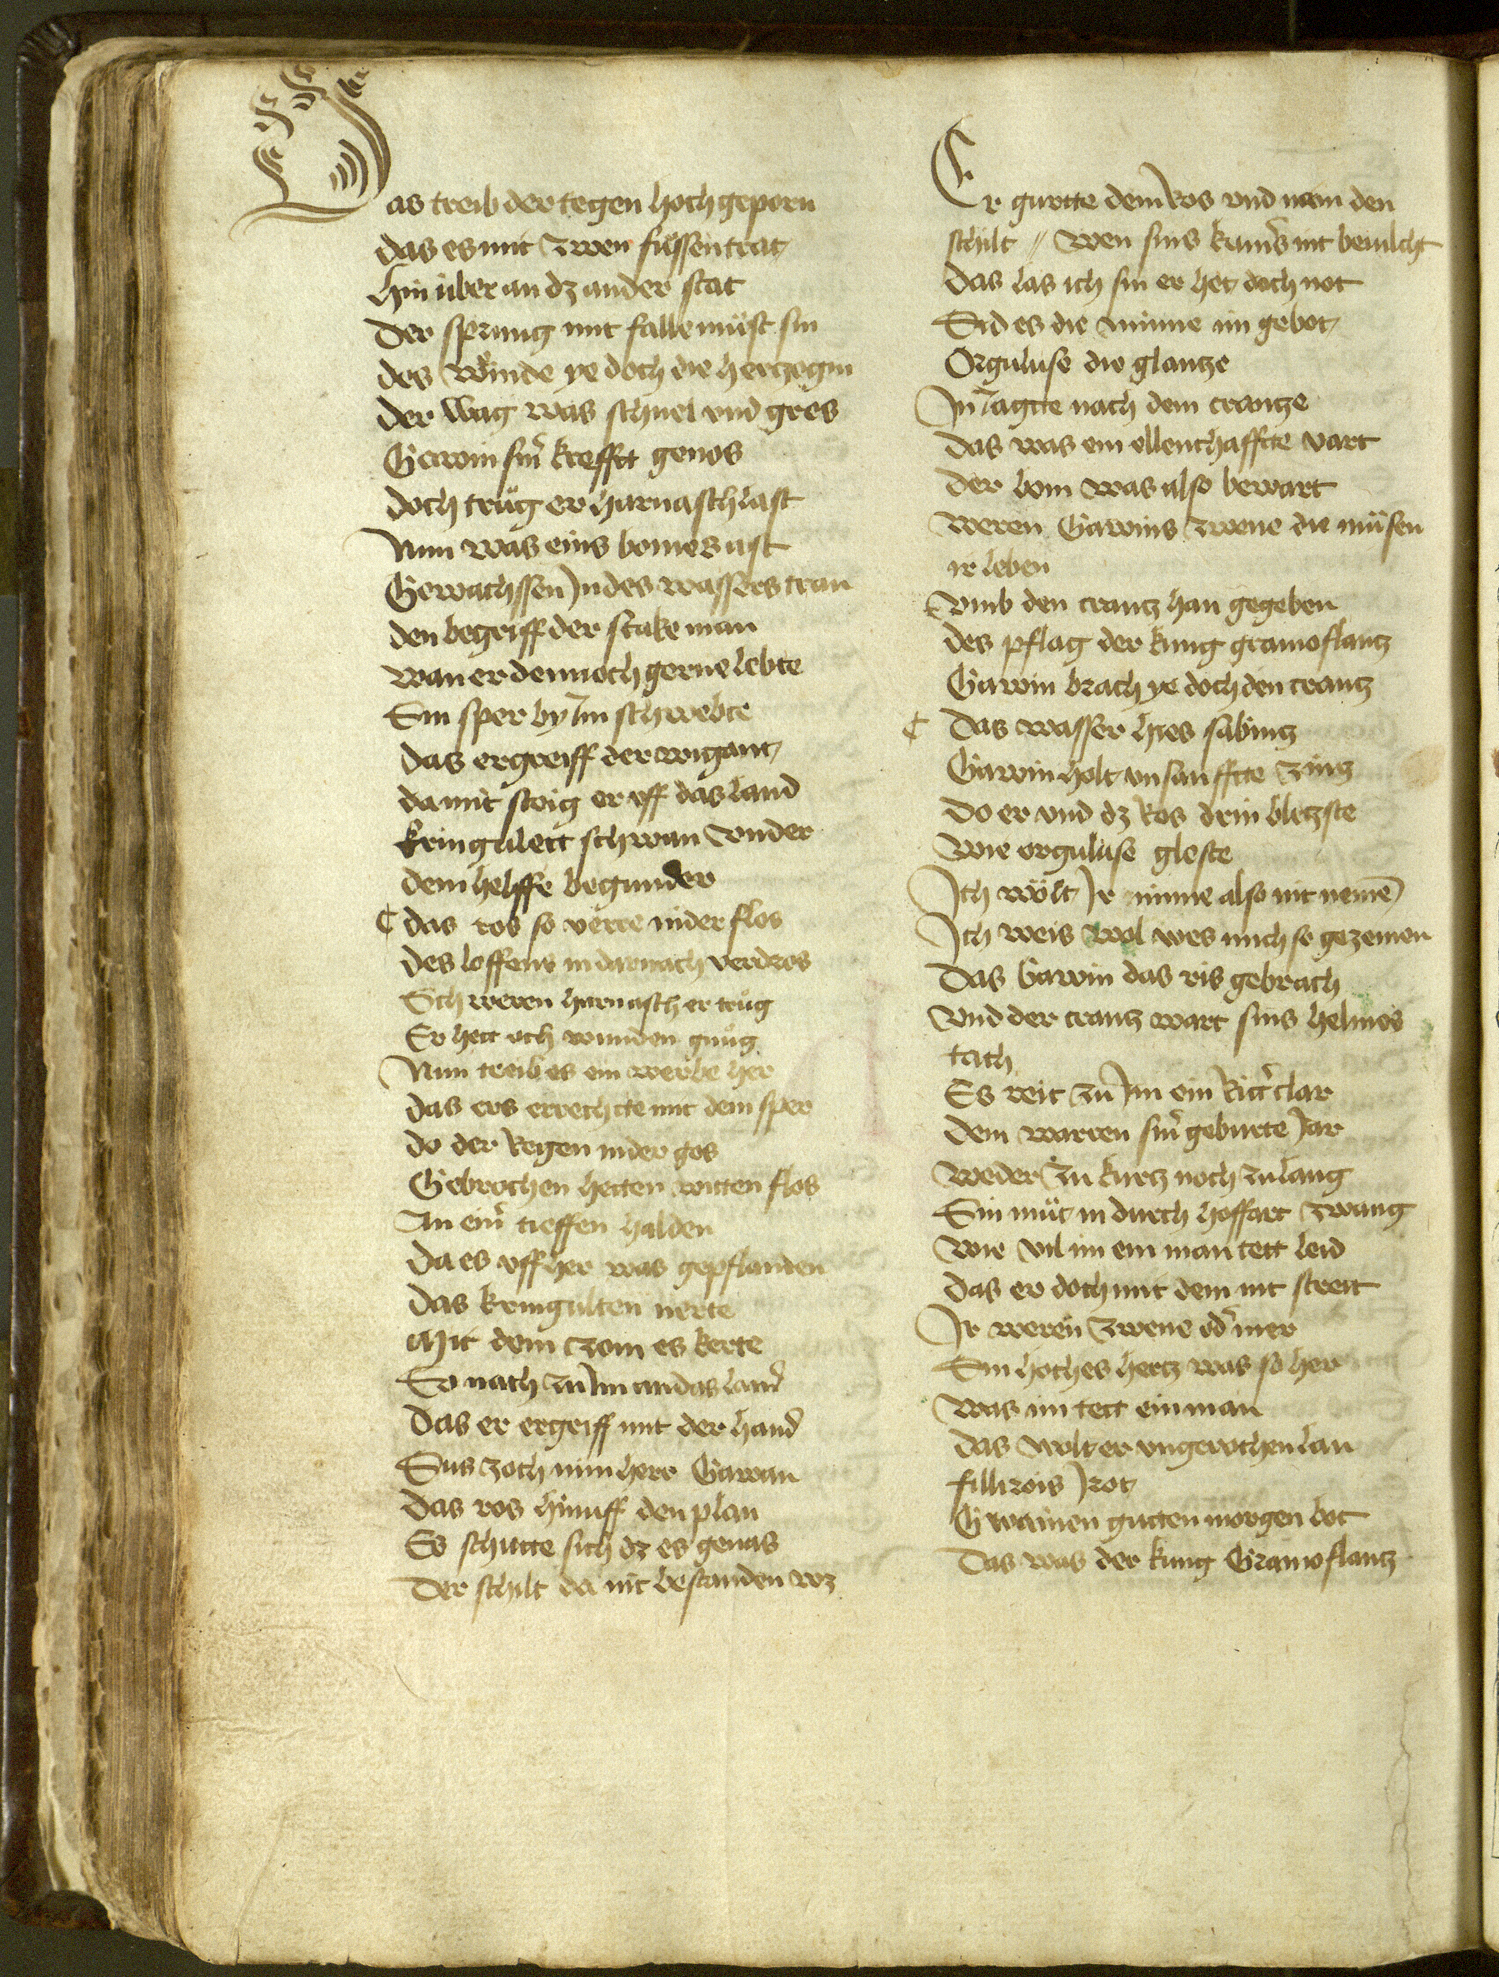 Das treib der tegen hochgeporn
das es mit zwen füssen trat
hin über an dz ander stat
Der sprung mit falle müst sin
des wünde ye doch die hertzogin
der wag was schnel vnd gros
Gawin siner krefftt genos
doch trüg er harnasch last
Nun was eins bomes ast
Gewachssen In des wassers tran
den begriff der starke man
wan er dennoch gerne lebte
Sin sper by Im schwebte
das ergreiff der wigant
da mit steig er vff das land
kringulett schwan vnder
dem helffe begunder
¢ das ros so verre nider flos
des loffens in darnach verdros
Schweren harnasch er trüg
Er hett och wunden gnüg
Nun treib es ein werbe her
das ers errechtte mit dem sper
do der Regen nider gos
Gebrochen hetten witten flos
An eim̉ tieffen halden
Da es vff her was gespalden
das kringulten nerte
Mit dem zom es kerte
So nach zü Im an das land
das er ergriff mit der hand
Sus zoch min herr Gawan
das ros hinuff den plan
Es schutte sich dz es genas
Der schilt da nit bestanden wz
Er gurtte dem Ros vnd nam den
schilt // wen sins kumers nit beuilcht
das las ich sin er het doch not
Sid es die minne im gebot
Orguluse die glantze
In Iagtte nach dem crantze
das was ein ellenthafftte vart
der bom was also bewart
weren Gawins zwene die müsen
ir leben
vmb den crantz han gegeben
des pflag der kung gramoflantz
Gawin brach ye doch den crantz
¢ das wasser hies sabintz
Gawin holt vnsanfftte zins
do er vnd dz Ros drin bletzste
wie orguluse gleste
Ich wölt Ir minne also nit neme͂
Ich weis wol wes mich so gezemen
das Gawin das ris gebrach
vnd der crantz wart sins helmes
tach
Es reit zü Im ein Rittẻr clar
dem warren sin̉ geburte Jar
weder zu kurtz noch zu lang
Sin müt in durch hoffart zwang
wie vil im ein man tett leid
das er doch mit dem nit streit
Ir weren zwene od̉ mer
Sin hoches hertz was so her
was im tett ein man
das wolt er vngerochen lan
fillirois Irot
Gwainen gutten morgen bot
Das was der kung Gramoflantz